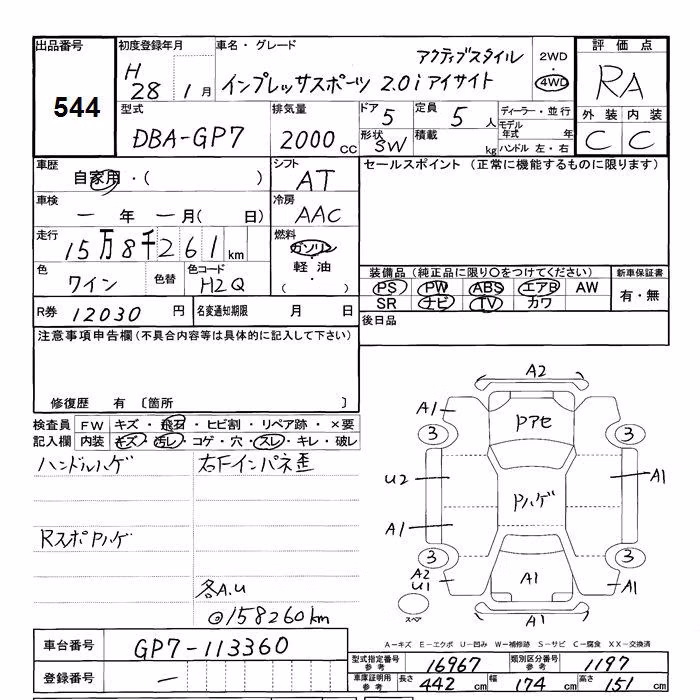 出品番号
544
初度登録年月
H 28 1月
車名・グレード
アクティブスタイル
インプレッサスポーツ 2.0i アイサイト
2WD
・
4WD
評価点
RA
外装 内装
C C
型式
DBA-GP7
排気量
2000 CC
ドア 5
形状 SW
定員 5 人
積載 kg
ディーラー・並行
モデル年式 年
ハンドル 左・右
車歴
自家用・( )
シフト
AT
セールスポイント (正常に機能するものに限ります)
車検
一 年 一 月( 日)
冷房
AAC
走行
15万8千261 km
燃料
ガソリン
・
軽油
・
( )
色
ワイン
色替
色コード
H2Q
装備品 (純正品に限り○をつけてください)
PS PW ABS エアB AW
SR ナビ TV カワ
新車保証書
有・無
R券 12030 円
名変通知期限 月 日
後日品
注意事項申告欄 (不具合内容等は具体的に記入して下さい)
修復歴 有 〔箇所 〕
検査員記入欄
FW キズ・飛石・ヒビ割・リペア跡・×要
内装 キズ・汚レ・コゲ・穴・スレ・キレ・破レ
ハンドルハゲ
右Fインパネ歪
RスポPハゲ
各A.U
⊙158260km
A2
A1
Pアセ
3
3
U2
Pハゲ
A1
A1
3
3
A2
U1
A1
A1
スペア
A1
A-キズ E-エクボ U-凹み W-補修跡 S-サビ C-腐食 XX-交換済
車台番号 GP7-113360
登録番号 一
型式指定番号 参考 16967
類別区分番号 参考 1197
車庫証明用 参考 長さ 442 cm 幅 174 cm 高さ 151 cm